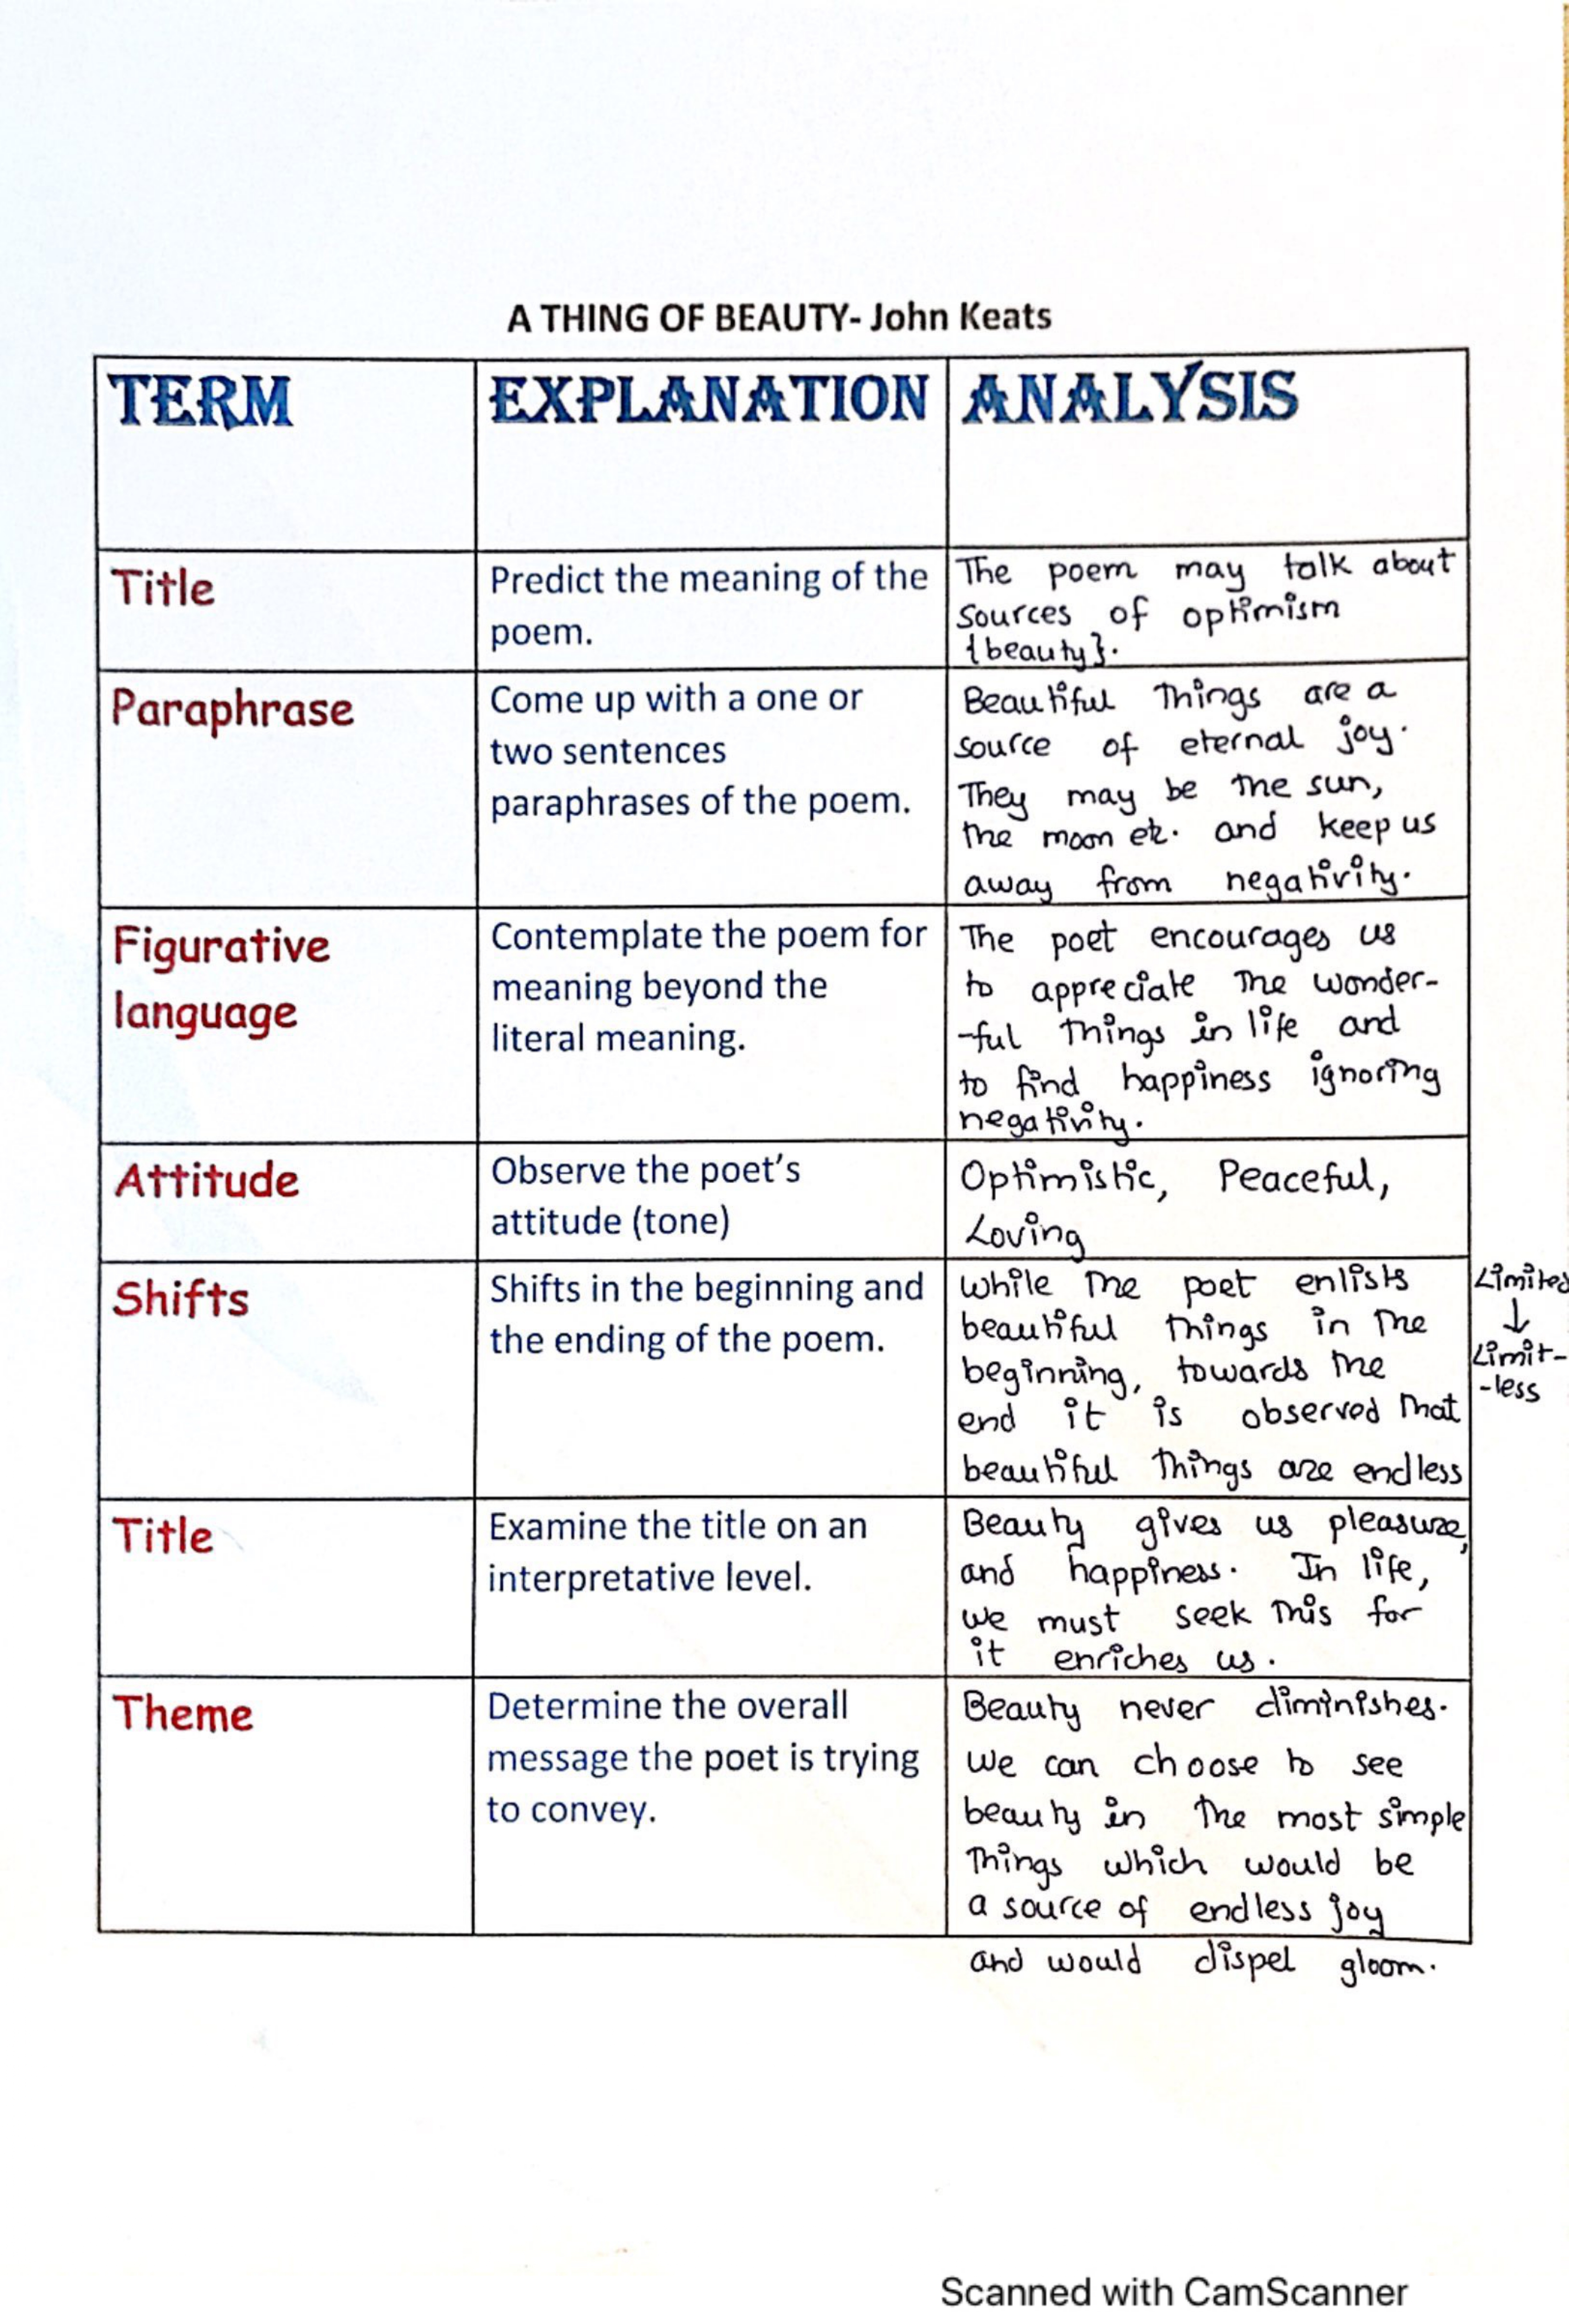 A THING OF BEAUTY- John Keats
TERM
EXPLANATION
ANALYSIS
Title
Predict the meaning of the
poem.
The poem may talk about
sources of optimism
{beauty}.
Paraphrase
Come up with a one or
two sentences
paraphrases of the poem.
Beautiful things are a
source of eternal joy.
They may be the sun,
the moon etc. and keep us
away from negativity.
Figurative
language
Contemplate the poem for
meaning beyond the
literal meaning.
The poet encourages us
to appreciate the wonder-
-ful things in life and
to find happiness ignoring
negativity.
Attitude
Observe the poet's
attitude (tone)
Optimistic, Peaceful,
Loving
Shifts
Shifts in the beginning and
the ending of the poem.
while the poet enlists
beautiful things in the
beginning, towards the
end it is observed that
beautiful things are endless
Limited
↓
Limit-
-less
Title
Examine the title on an
interpretative level.
Beauty gives us pleasure,
and happiness. In life,
we must seek this for
it enriches us.
Theme
Determine the overall
message the poet is trying
to convey.
Beauty never diminishes.
we can choose to see
beauty in the most simple
things which would be
a source of endless joy
and would dispel gloom.
Scanned with CamScanner